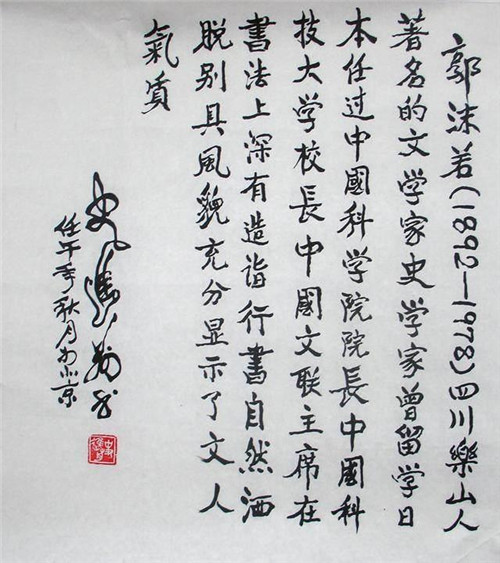 郭沫若(1892—1978)四川樂山人
著名的文学家史学家曾留学日
本任过中國科学院院長中國科
技大学校長中國文联主席在
書法上深有造诣行書自然洒
脱别具風貌充分显示了文人
氣质
壬午年秋月于北京